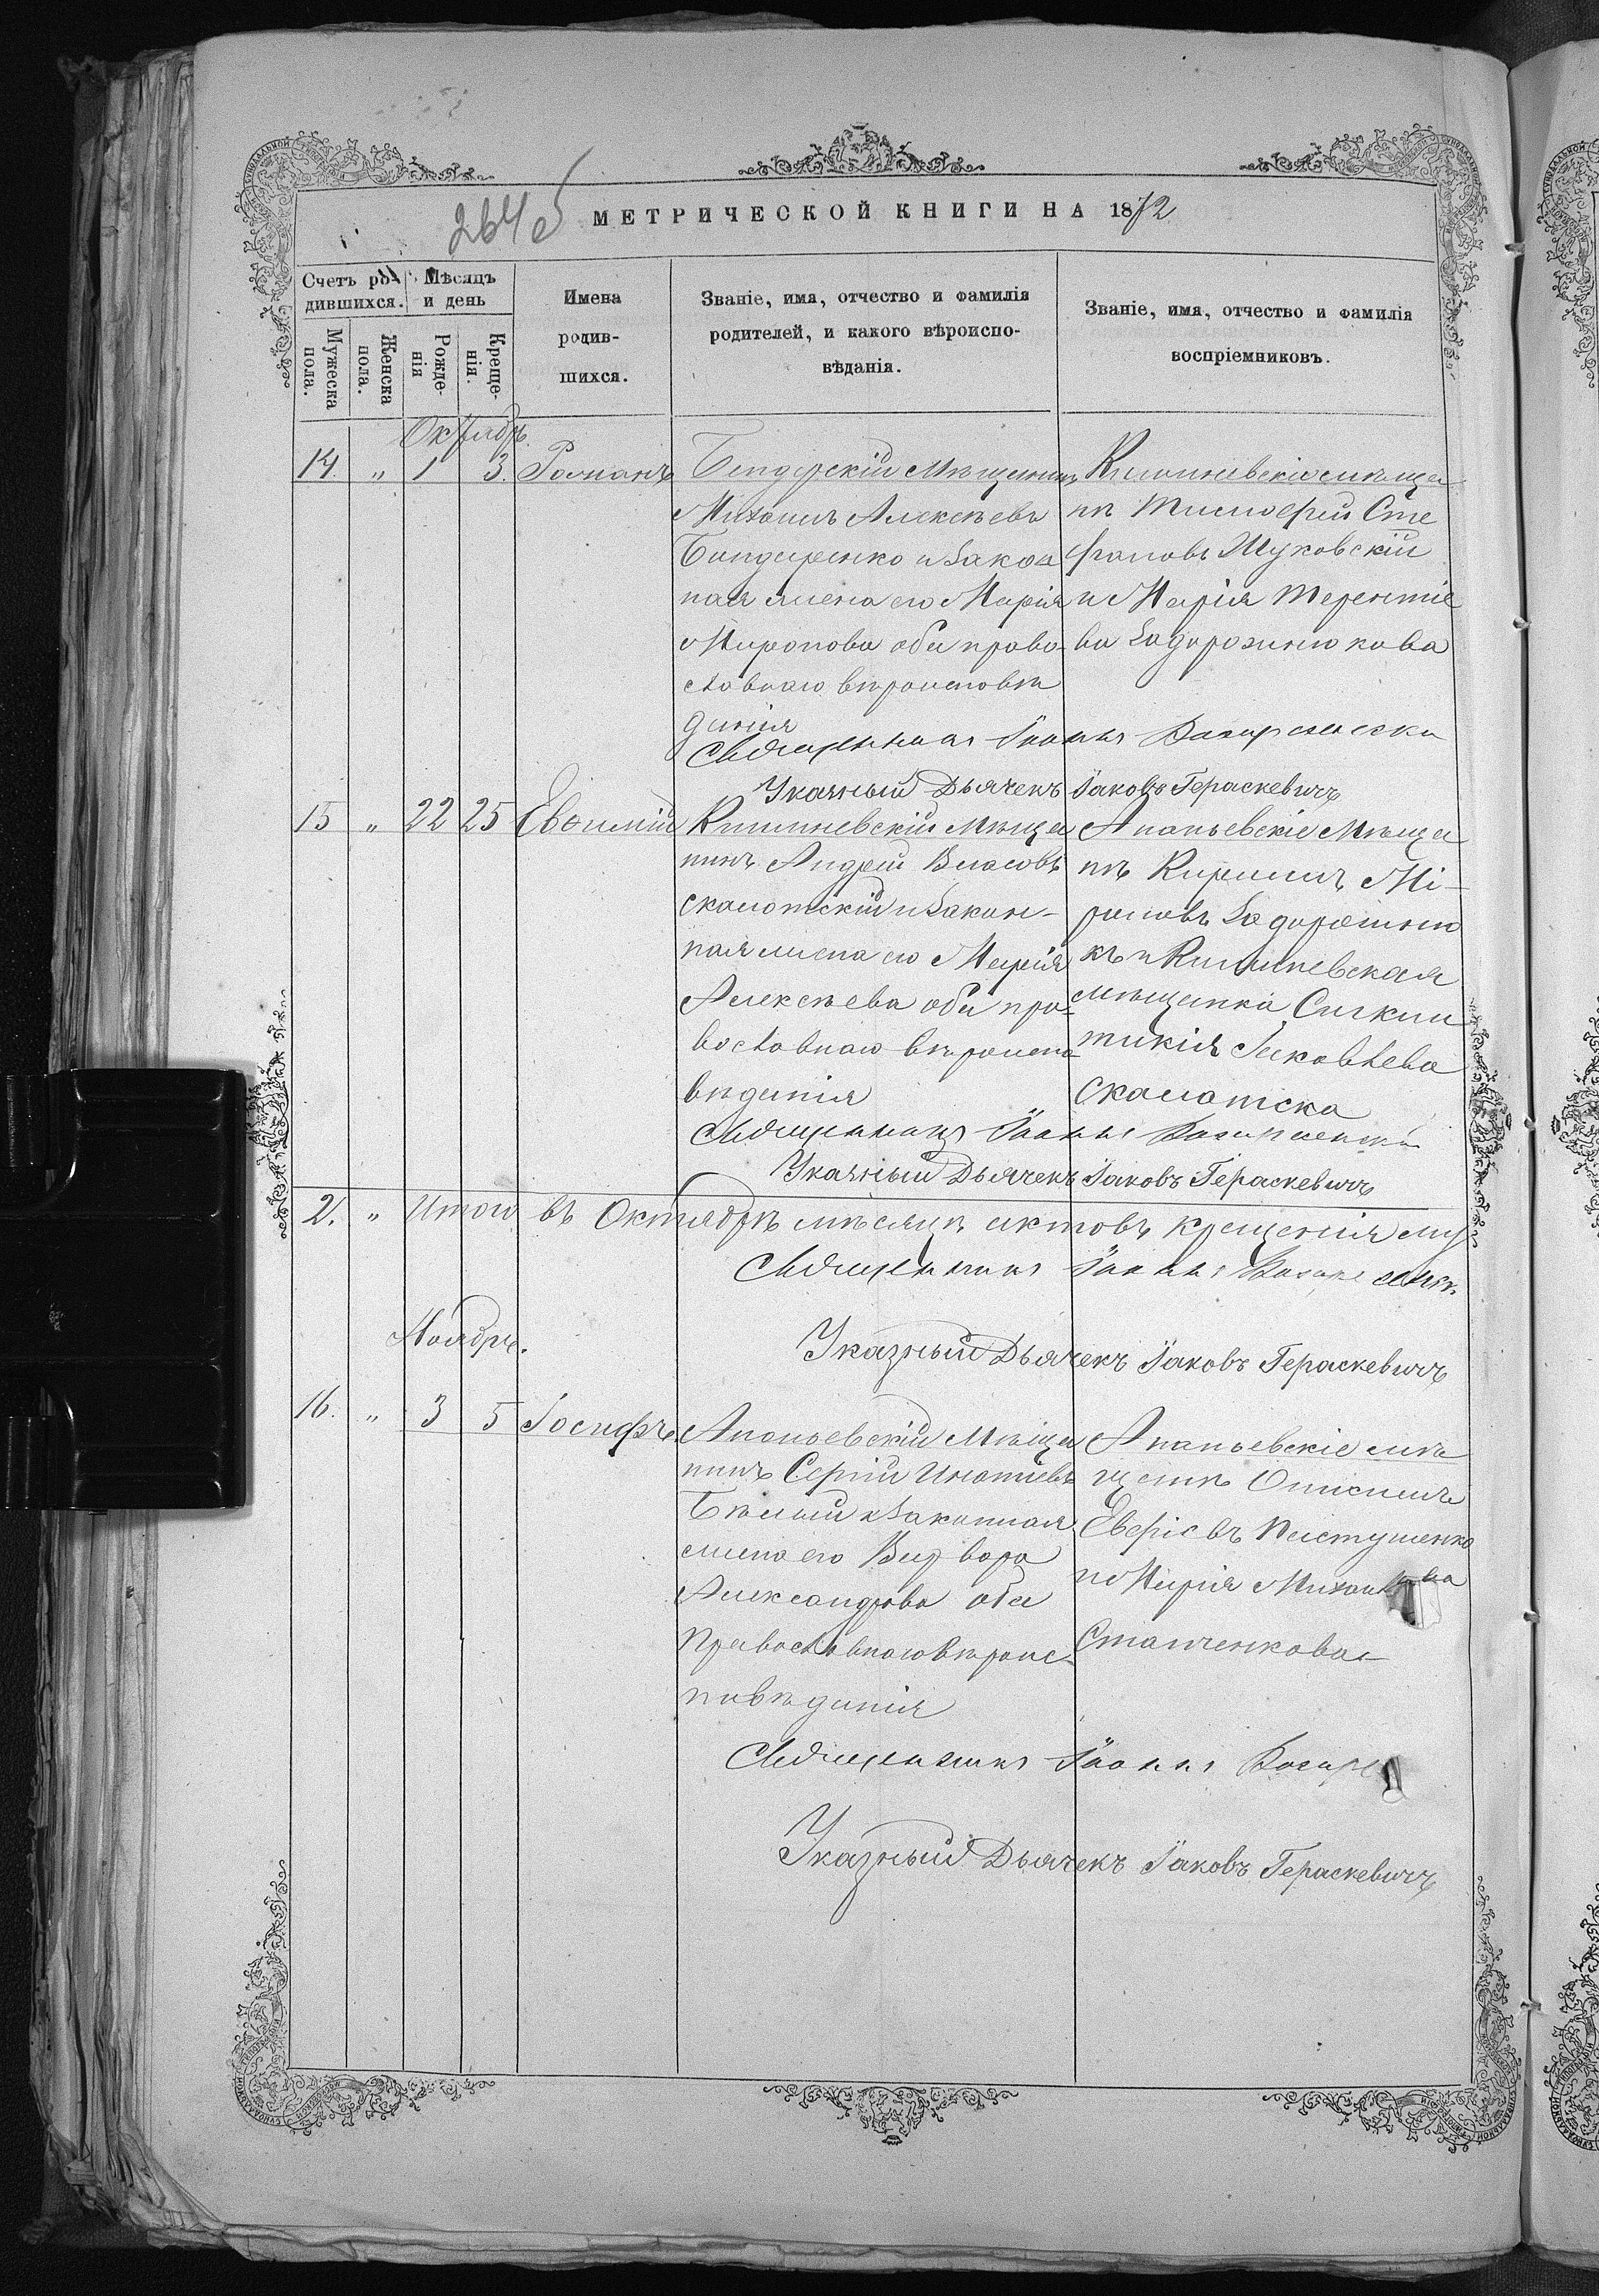 264 об
МЕТРИЧЕСКОЙ КНИГИ НА 1872
Счетъ ро-
дившихся.
Мѣсяцъ
и день
Мужеска
пола.
Женска
пола.
Рожде-
нія
Креще-
нія.
Имена
родив-
шихся.
Званіе, имя, отчество и фамилія
родителей, и какого вѣроиспо-
вѣданія.
Званіе, имя, отчество и фамилія
воспріемниковъ.
Октябрь.
14. " 1 3. Романъ
Бендерскій Мѣщанинъ
Михаилъ Алексѣевъ
Бондаренко и закон
ная жена его Марія
Миронова оба право-
славнаго вѣроисповѣ
данія
Кишиневскіе мѣща
не Тимофей Сте
фановъ Жуковскій
и Марія Терентіе
ва Задорожнюкова
Священникъ Іоаннъ
Указный Дьячекъ Іаковъ Гераскевичъ
15 " 22 25 Евфимій
Кишиневскій Мѣща
нинъ Андрей Власовъ
Скалотскій и закон-
ная жена его Марія
Алексѣева оба пра-
вославнаго вѣроиспо
вѣданія
Ананьевскіе Мѣща
не Кириллъ Мі-
роновъ Задорожню
къ и Кишиневская
мѣщанка Синкли
тикія Іаковлева
Скалотска
Священникъ Іоаннъ
Указный Дьячекъ Іаковъ Гераскевичъ
2. " Итого въ Октябрѣ мѣсяцѣ актовъ крещенія муж
Священникъ Іоаннъ
Указный Дьячекъ Іаковъ Гераскевичъ
Ноябрь.
16. " 3 5 Іосифъ.
Ананьевскій Мѣща
нинъ Сергій Игнатіевъ
Бѣлый и законная
жена его Варвара
Александрова оба
православнаго вѣроис-
повѣданія
Ананьевскіе мѣ
щане Онисимъ
Пастушенко
и Марія
Станченкова
Священникъ Іоаннъ
Указный Дьячекъ Іаковъ Гераскевичъ